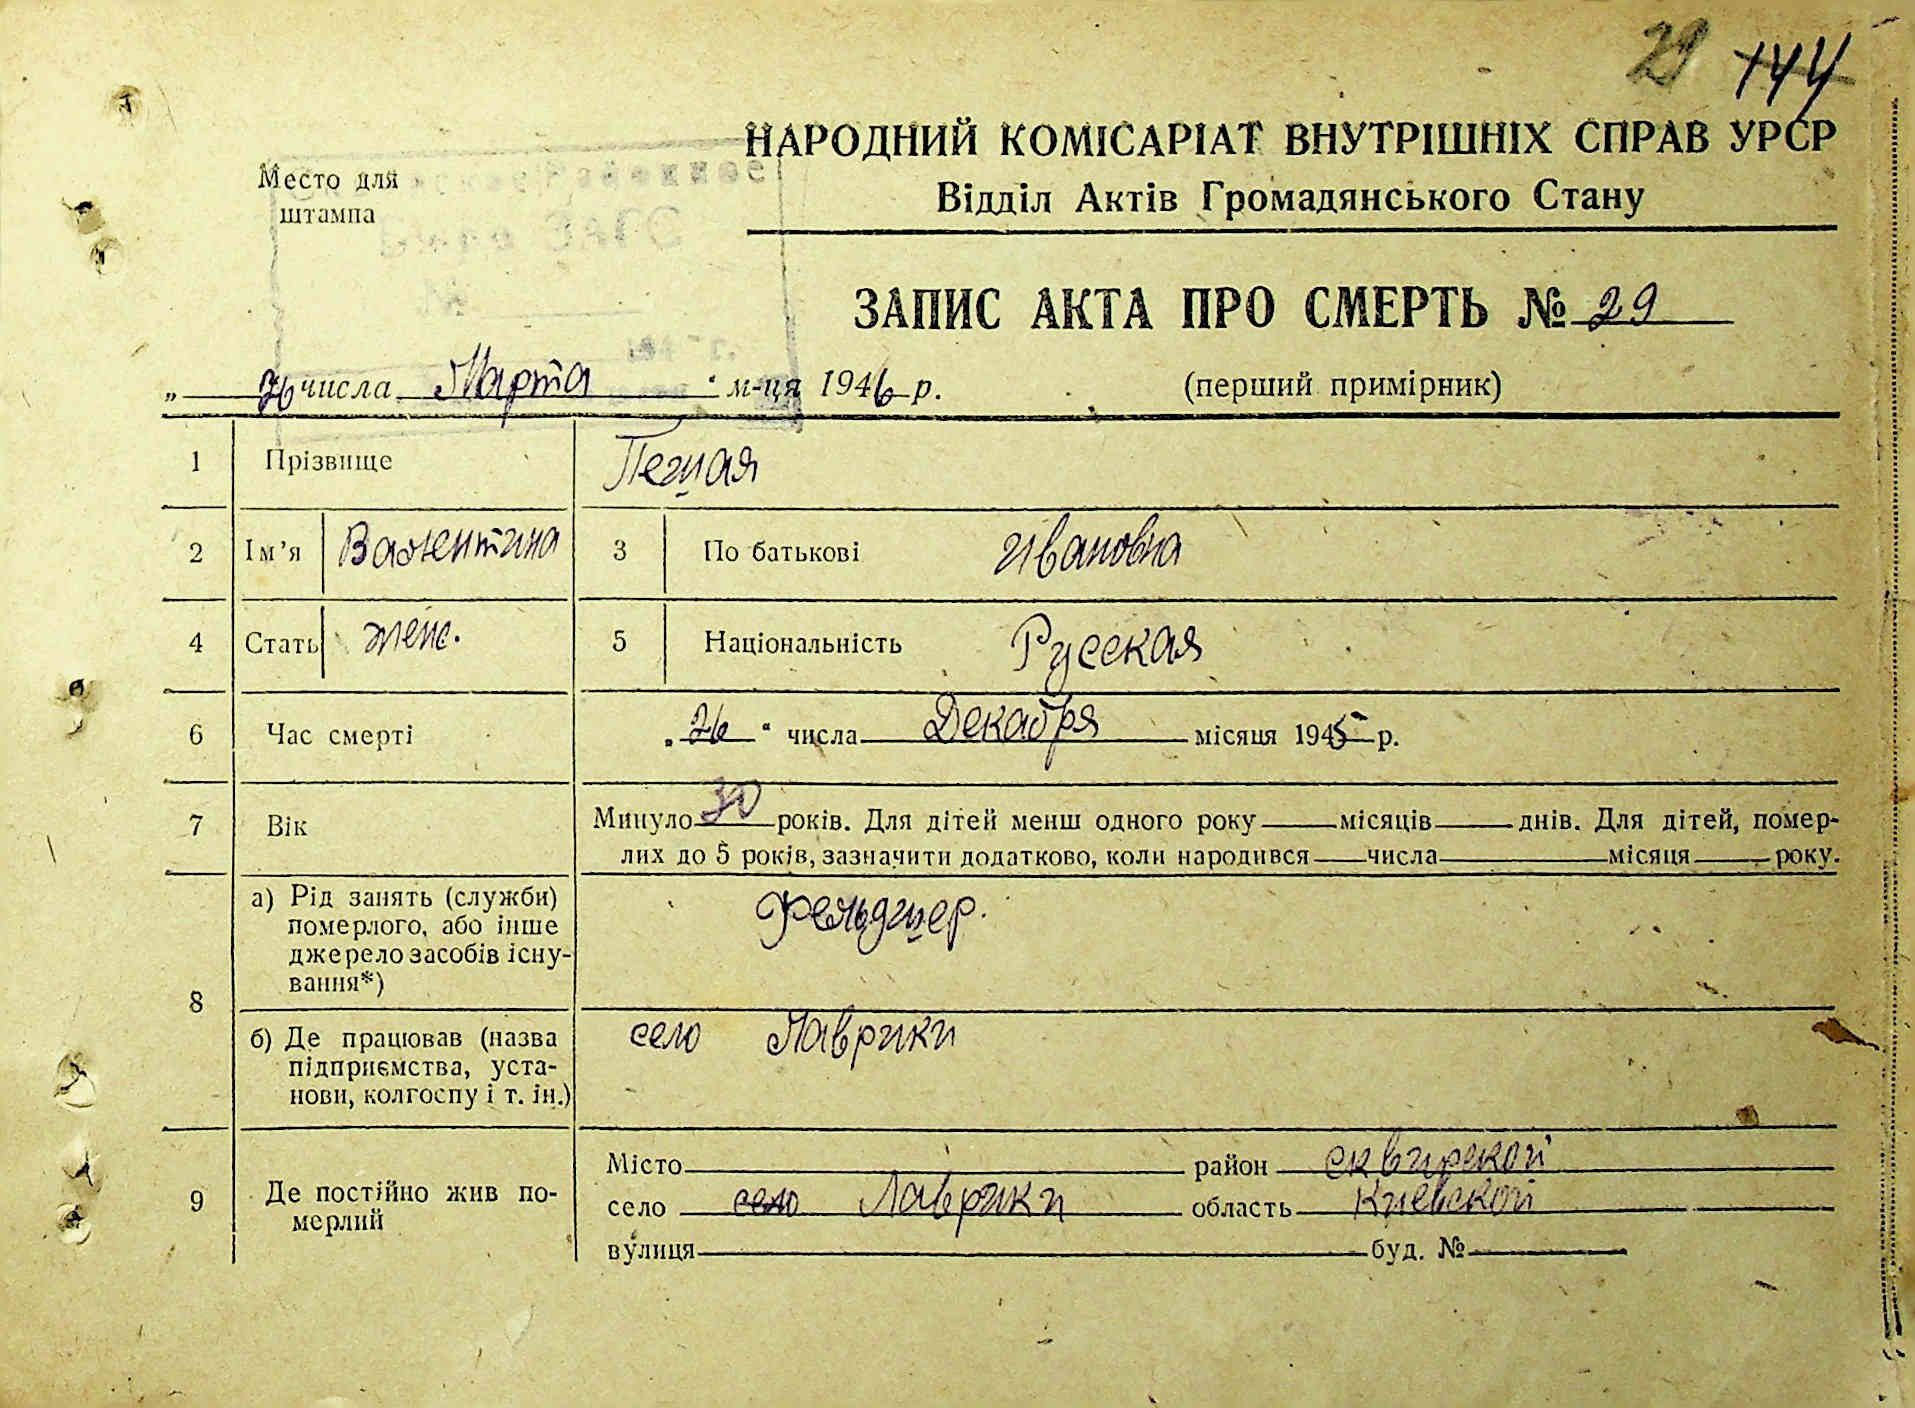 29 144
НАРОДНИЙ КОМІСАРІАТ ВНУТРІШНІХ СПРАВ УРСР
Відділ Актів Громадянського Стану
Место для
штампа
ЗАПИС АКТА ПРО СМЕРТЬ № 29
„ 26 числа Марта “ м-ця 1946 р. (перший примірник)
1 Прізвище
2 Ім’я Валентина 3 По батькові Ивановна
4 Стать женс. 5 Національність Русская
6 Час смерті „ 26 “ числа Декабря місяця 1945 р.
7 Вік Минуло 30 років. Для дітей менш одного року місяців днів. Для дітей, помер-
лих до 5 років, зазначити додатково, коли народився числа місяця року.
8 а) Рід занять (служби)
померлого, або інше
джерело засобів існу-
вання*)
Фельдшер.
б) Де працював (назва
підприємства, уста-
нови, колгоспу і т. ін.)
село Лаврики
9 Де постійно жив по-
мерлий
Місто район сквирской
село село Лаврики область Киевской
вулиця буд. №